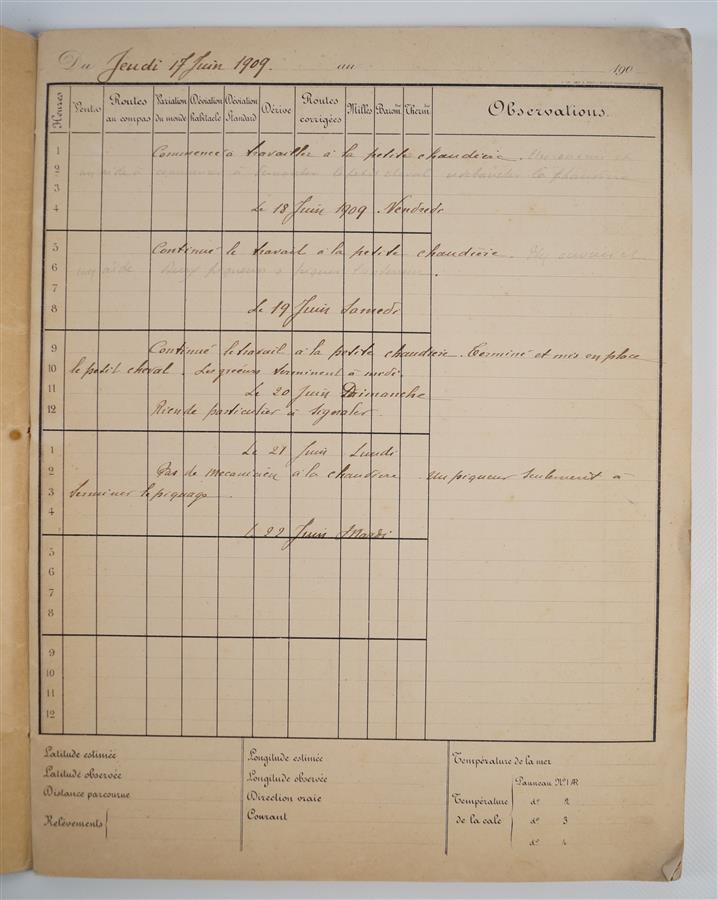 Du Jeudi 17 Juin 1909. au 190
Heures Vents Routes au compas Variation du monde Déviation habitacle Déviation Standard Dérive Routes corrigées Milles Barom Therm Observations.
1 Commencé à travailler à la petite chaudière.
2
3
4 Le 18 Juin 1909 Vendredi
5 Continué le travail à la petite chaudière.
6
7
8 Le 19 Juin Samedi
9 Continué le travail à la petite chaudière. Terminé et mis en place
10 le petit cheval. Les gréeurs terminent à midi.
11 Le 20 Juin Dimanche
12 Rien de particulier à signaler.
1 Le 21 Juin Lundi
2 Pas de mecanicien à la chaudiere Un piqueur seulement à
3 terminer le piquage.
4
Le 22 Juin Mardi
5
6
7
8
9
10
11
12
Latitude estimée
Latitude observée
Distance parcourue
Relèvements
Longitude estimée
Longitude observée
Direction vraie
Courant
Température de la mer
Température de la cale
Panneau No 1 AR
do 2
do 3
do 4